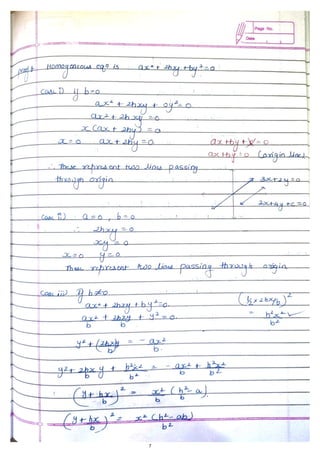 Page No.
Date
proof:- Homogeneous eqn is ax² + 2hxy + by² = 0
Case i) If b=0
ax² + 2hxy + 0y² = 0
ax² + 2hxy = 0
x (ax + 2hy) = 0
x = 0 ax + 2hy = 0
ax + by + c = 0
ax + by = 0 (origin line)
∴ These represent two lines passing
through origin
3x+2y=0
2x+4y+c=0
Case ii) a = 0 , b = 0
∴ 2hxy = 0
xy = 0
x = 0 y = 0
These represent two lines passing through origin
Case iii) If b≠0
ax² + 2hxy + by² = 0.
ax²/b + 2hxy/b + y² = 0
(½ x 2hx/b)²
= h²x²/b²
y² + (2hxy/b) = - ax²/b
y² + 2hx/b y + h²x²/b² = - ax²/b + h²x²/b²
(y + hx/b)² = x²/b (h²/b - a)
(y + hx/b)² = x² (h² - ab)/b²
7